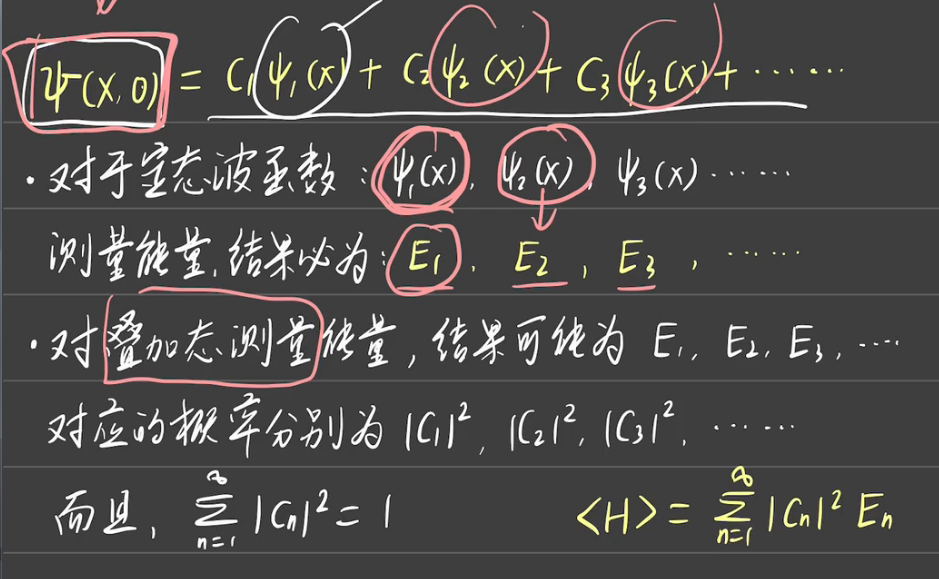 Ψ(x,0) = C₁ψ₁(x) + C₂ψ₂(x) + C₃ψ₃(x) + ……
·对于定态波函数：ψ₁(x), ψ₂(x), ψ₃(x)……
测量能量,结果必为：E₁, E₂, E₃, ……
·对叠加态测量能量,结果可能为 E₁, E₂, E₃, ……
对应的概率分别为 |C₁|², |C₂|², |C₃|², ……
而且, ∑_{n=1}^{∞} |Cn|² = 1 <H> = ∑_{n=1}^{∞} |Cn|² En